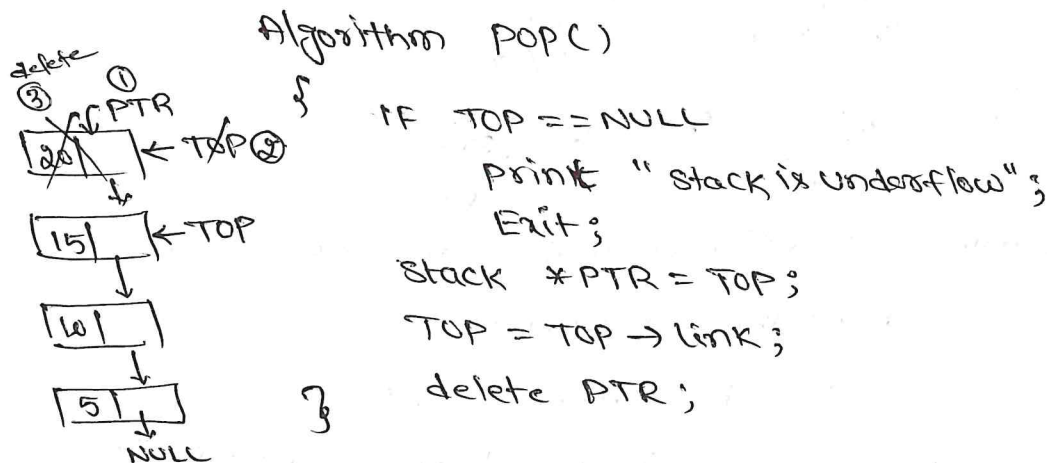 Algorithm POP()
{
IF TOP == NULL
Print "Stack is Underflow";
Exit;
Stack *PTR = TOP;
TOP = TOP → link;
delete PTR;
}
delete
③ ① PTR
20 ← TOP ②
15 ← TOP
10
5
NULL